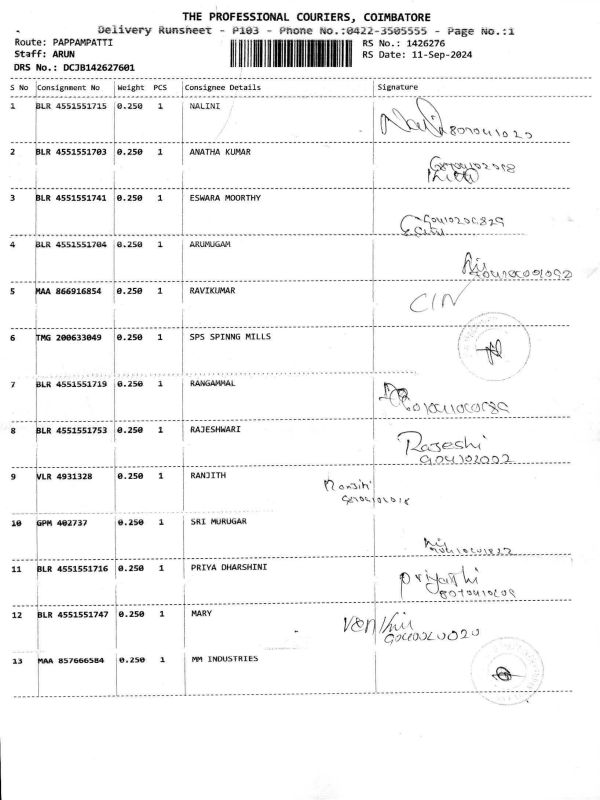 THE PROFESSIONAL COURIERS, COIMBATORE
Delivery Runsheet - P103 - Phone No.:0422-3505555 - Page No.:1
Route: PAPPAMPATTI RS No.: 1426276
Staff: ARUN RS Date: 11-Sep-2024
DRS No.: DCJB142627601
S No Consignment No Weight PCS Consignee Details Signature
1 BLR 4551551715 0.250 1 NALINI
2 BLR 4551551703 0.250 1 ANATHA KUMAR
3 BLR 4551551741 0.250 1 ESWARA MOORTHY
4 BLR 4551551704 0.250 1 ARUMUGAM
5 MAA 866916854 0.250 1 RAVIKUMAR
6 TMG 200633049 0.250 1 SPS SPINNG MILLS
7 BLR 4551551719 0.250 1 RANGAMMAL
8 BLR 4551551753 0.250 1 RAJESHWARI Rajeshi
9 VLR 4931328 0.250 1 RANJITH
10 GPM 402737 0.250 1 SRI MURUGAR
11 BLR 4551551716 0.250 1 PRIYA DHARSHINI
12 BLR 4551551747 0.250 1 MARY
13 MAA 857666584 0.250 1 MM INDUSTRIES